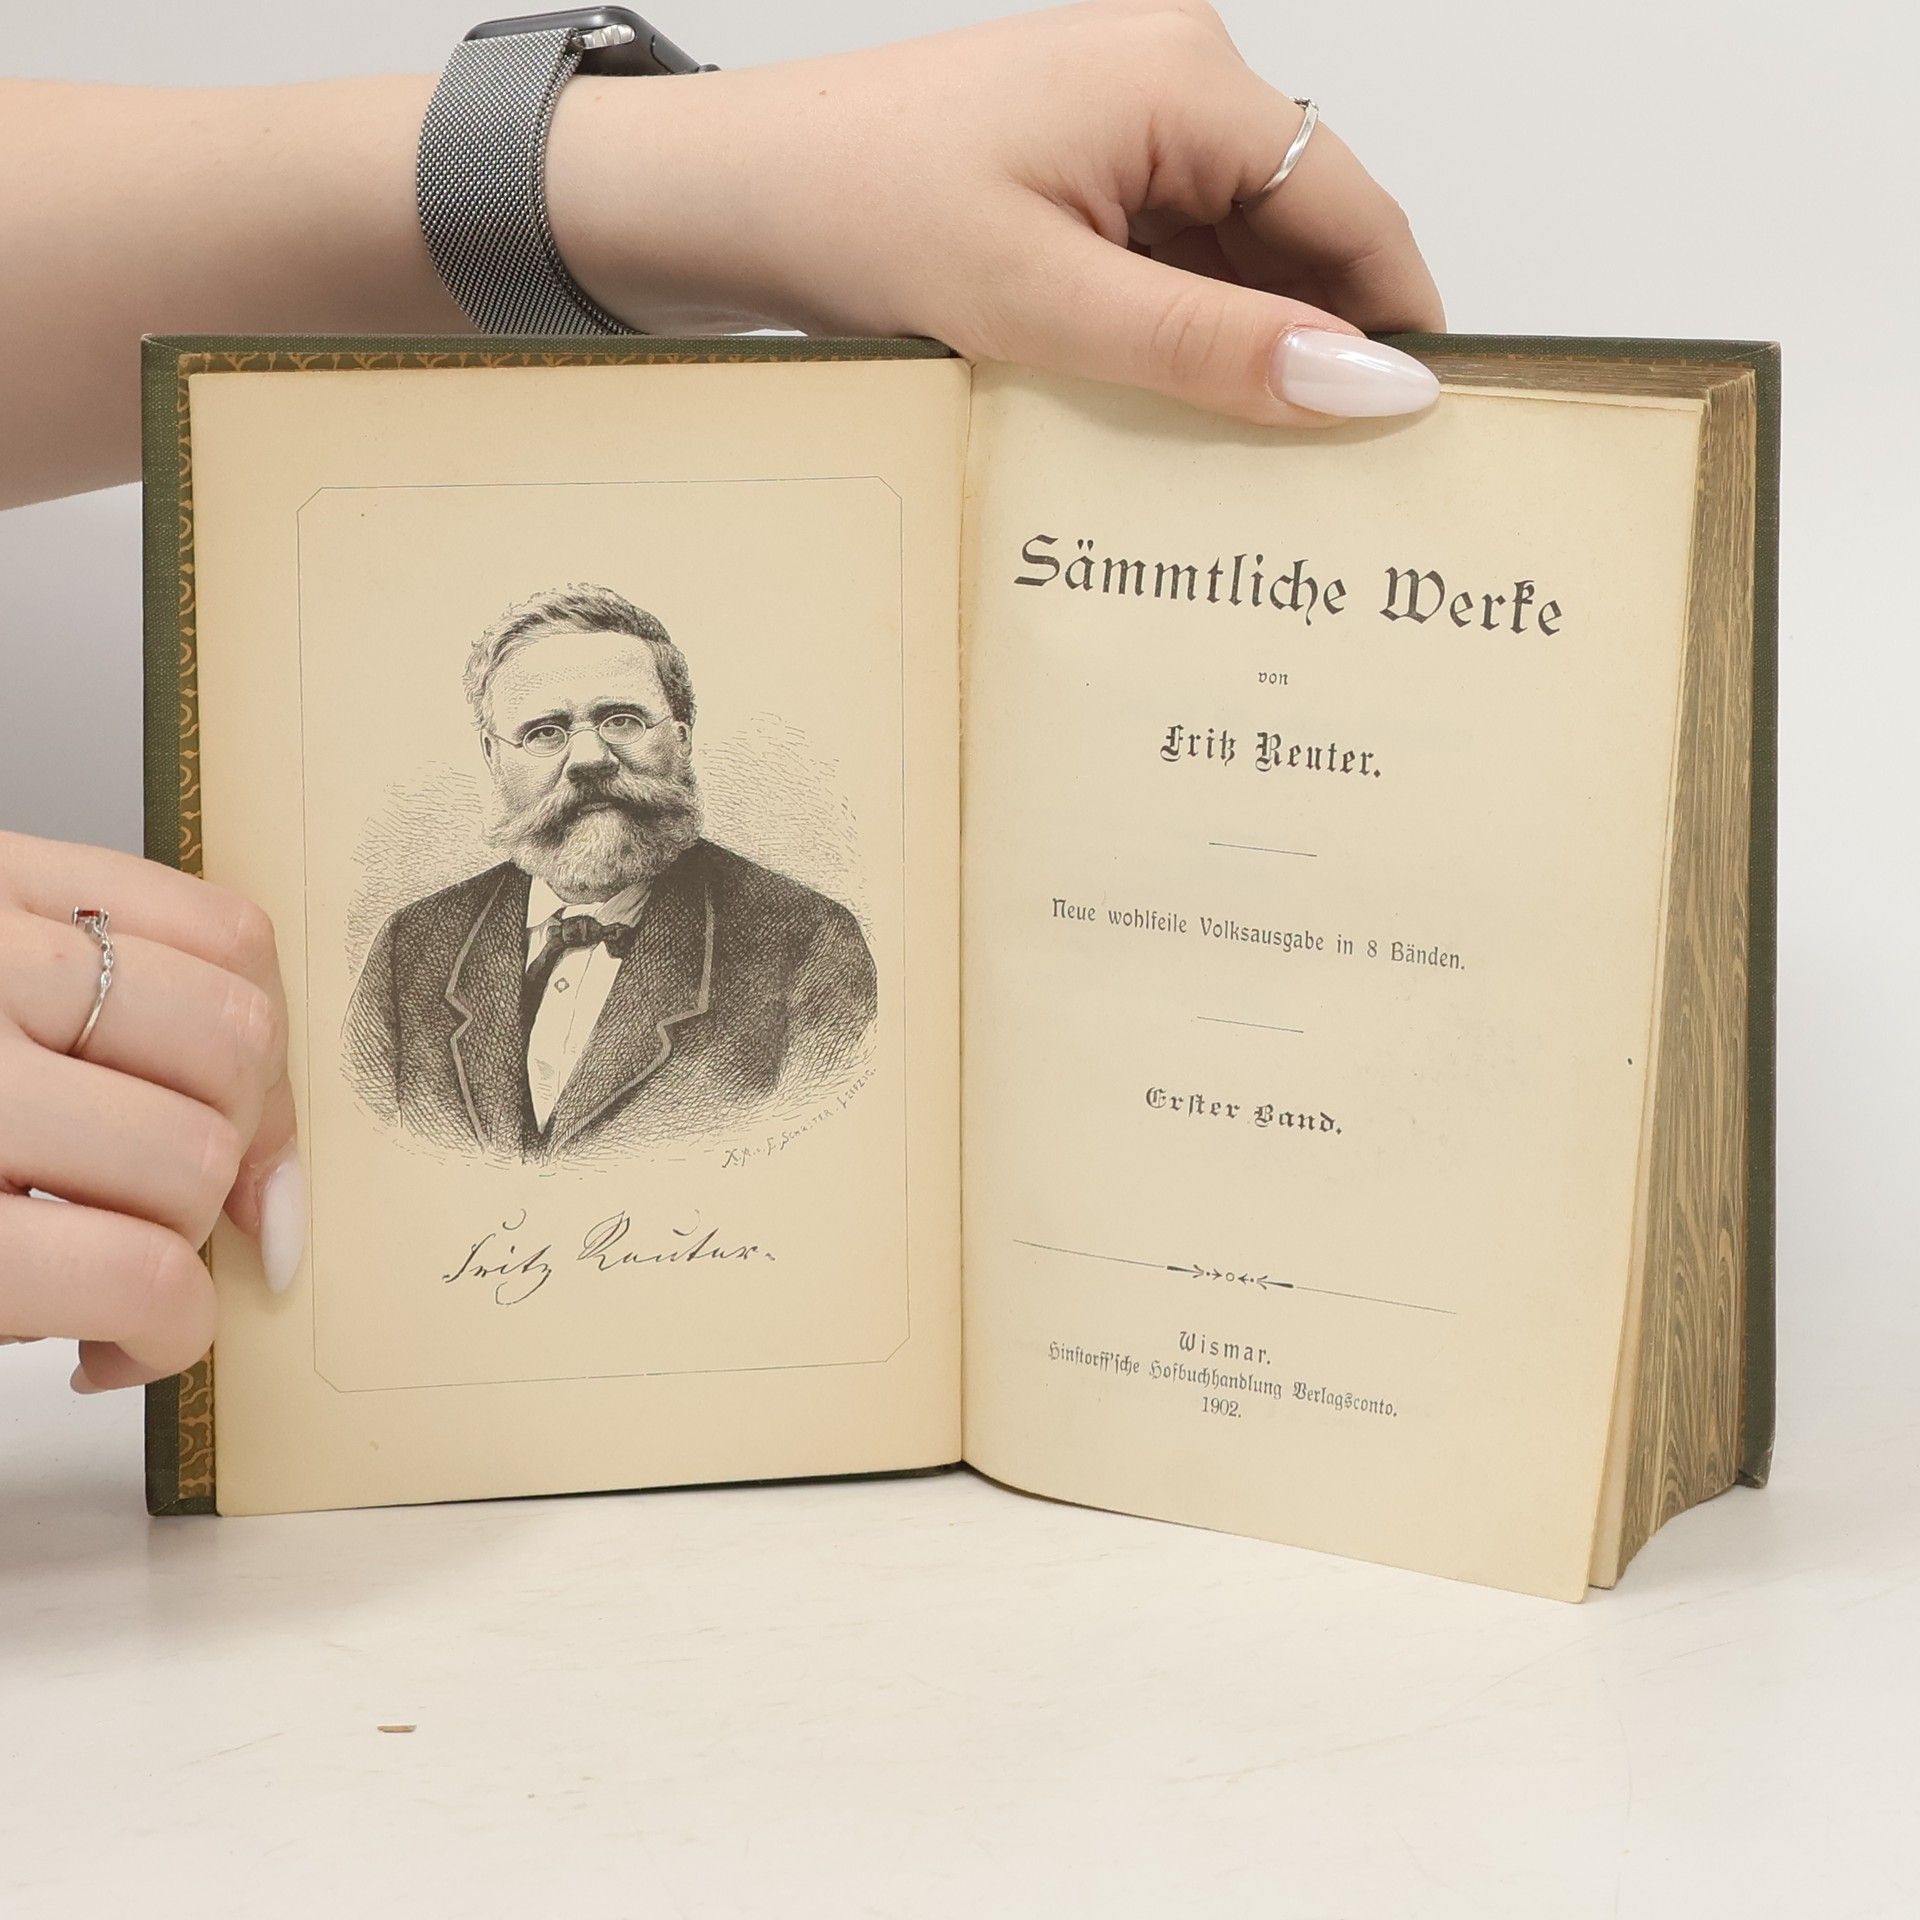 Fritz Reuter.
Sämmtliche Werke
von
Fritz Reuter.
Neue wohlfeile Volksausgabe in 8 Bänden.
Erster Band.
Wismar.
Hinstorff'sche Hofbuchhandlung Verlagsconto.
1902.